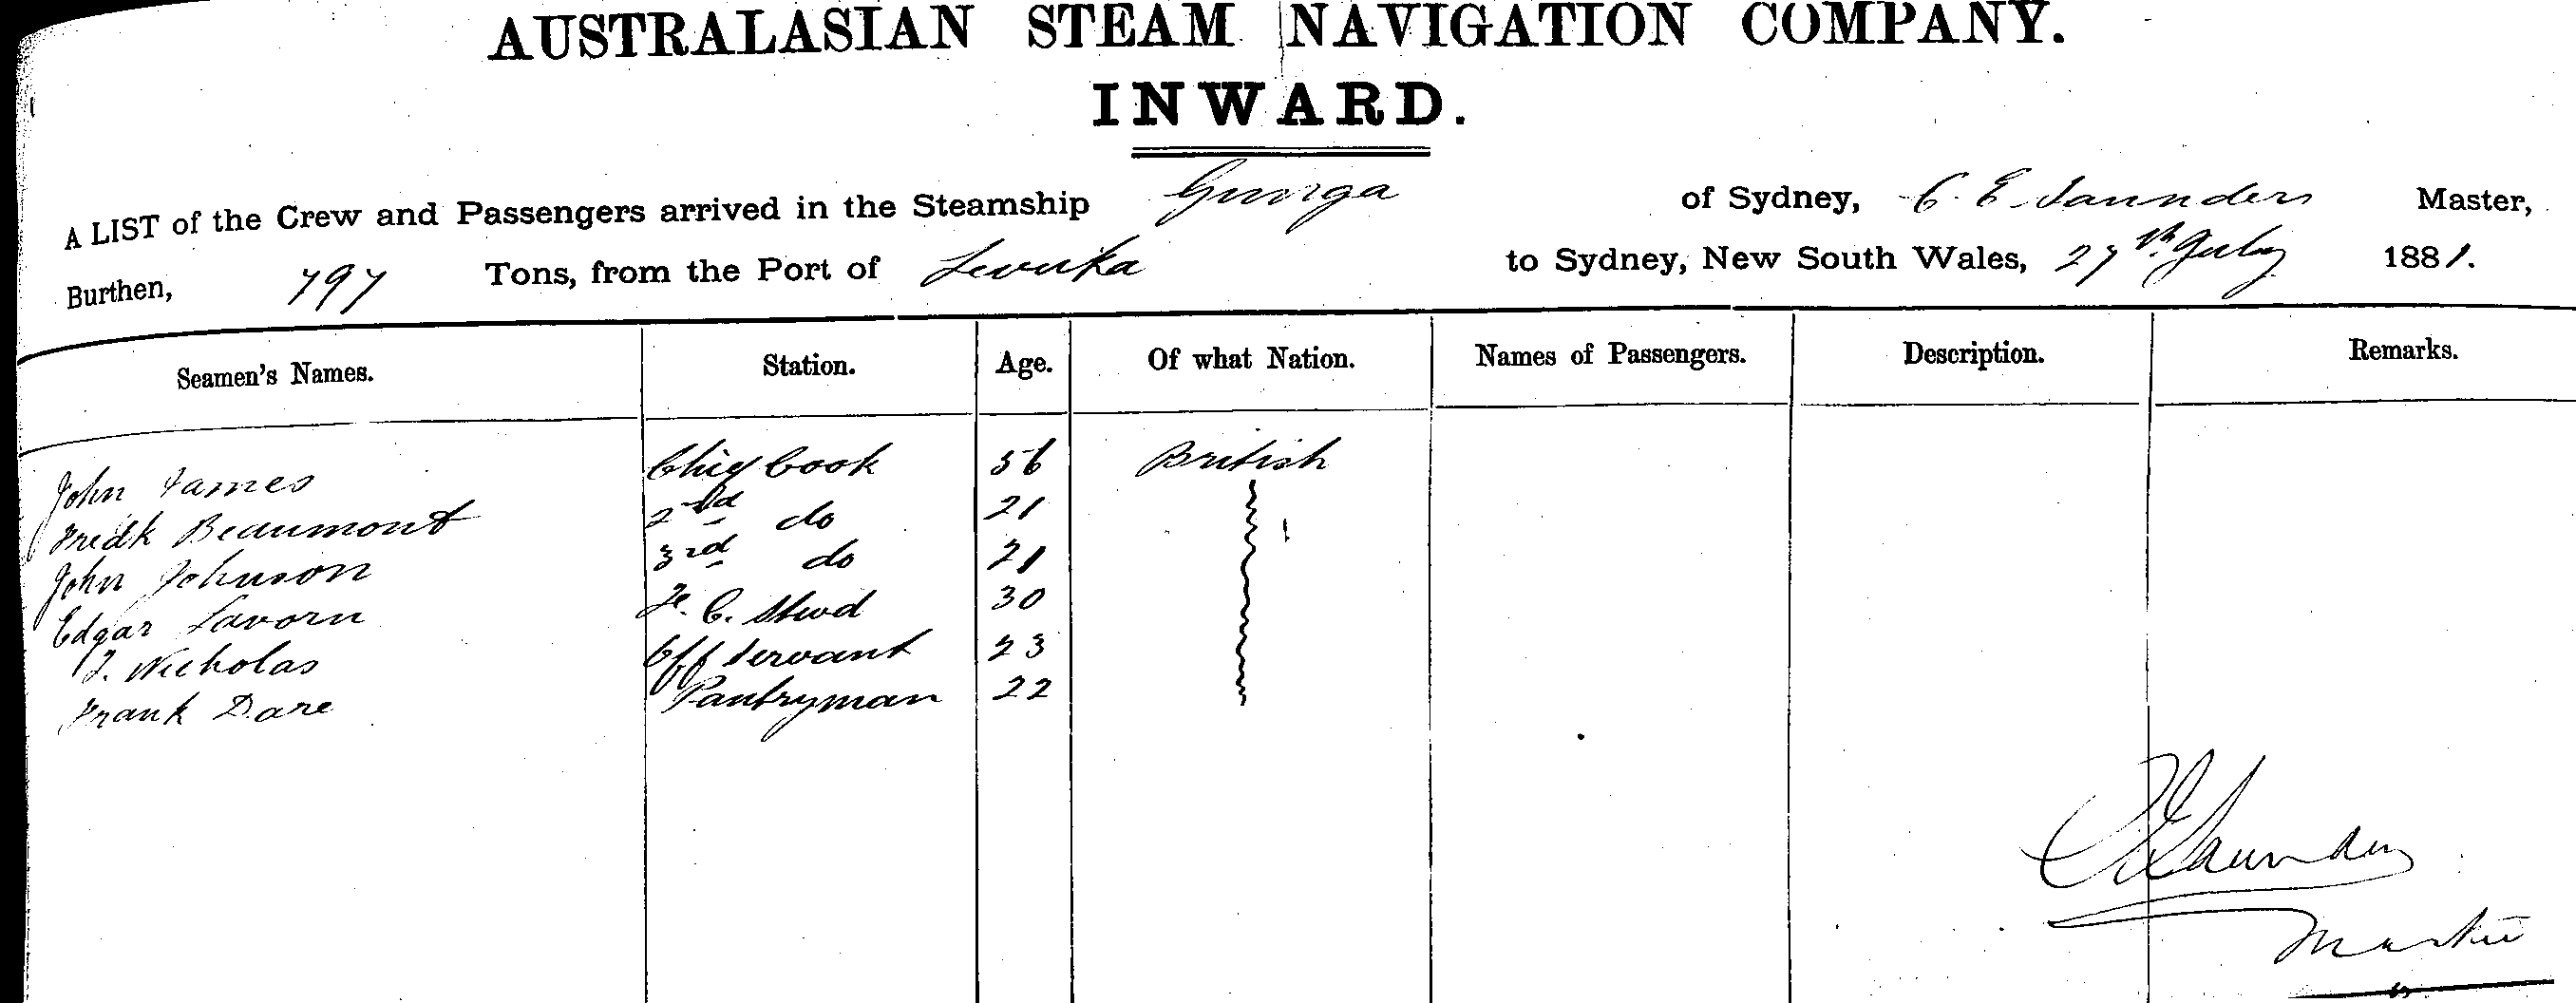 AUSTRALASIAN STEAM NAVIGATION COMPANY.
INWARD.
A LIST of the Crew and Passengers arrived in the Steamship Gunga of Sydney, C. E. Saunders Master,
Burthen, 797 Tons, from the Port of Levuka to Sydney, New South Wales, 27th July 1881.
Seamen's Names. Station. Age. Of what Nation. Names of Passengers. Description. Remarks.
John James Chief Cook 56 British
Fredk Beaumont 2nd do 21
John Johnson 3rd do 21
Edgar Lavorn Fe. C. Stwd 30
J. Nicholas Off Servant 23
Frank Dare Pantryman 22
C E Saunders
Master